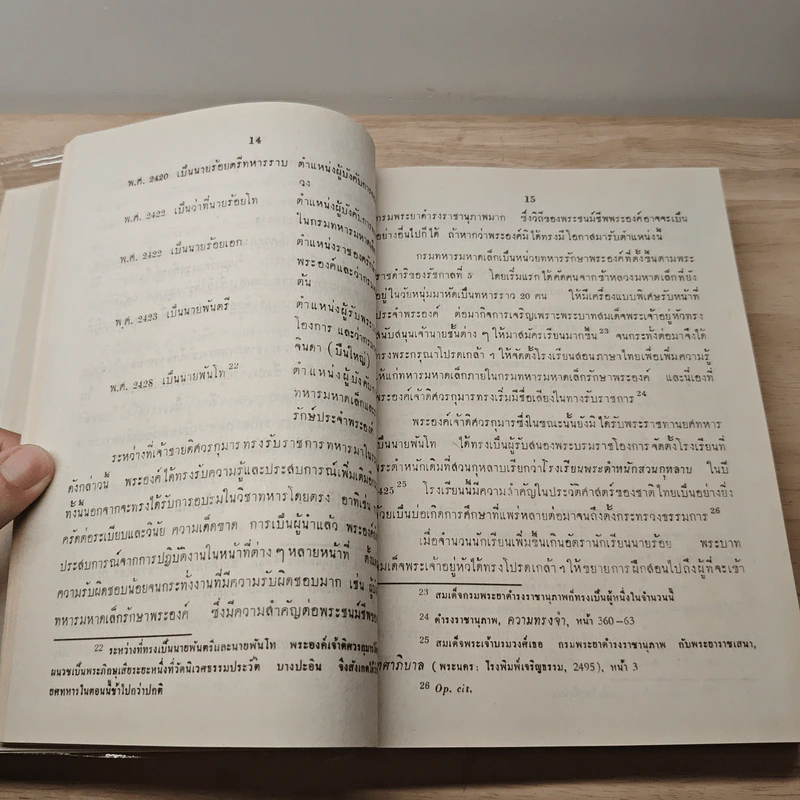 14
พ.ศ. 2420 เป็นนายร้อยตรีทหารราบ ตำแหน่งผู้บังคับ
วง
พ.ศ. 2422 เป็นว่าที่นายร้อยโท ตำแหน่งผู้บังคับ
ในกรมทหารมหาดเล็ก
พ.ศ. 2422 เป็นนายร้อยเอก ตำแหน่งราชองครักษ์
พระองค์และว่า
ตัน
พ.ศ. 2423 เป็นนายพันตรี ตำแหน่งผู้รับพระ
โองการ และว่า
จินดา (ปืนใหญ่)
พ.ศ. 2428 เป็นนายพันโท 22 ตำแหน่งผู้บังคับ
ทหารมหาดเล็ก
รักษ์ประจำพระองค์
ระหว่างที่เจ้าชายดิศวรกุมารทรงรับราชการทหารมาใน
ดังกล่าวนี้ พระองค์ได้ทรงรับความรู้และประสบการณ์เพิ่มเติม
ทั้งนี้นอกจากจะทรงได้รับการอบรมในวิชาทหารโดยตรง อาทิเช่น
ครัดต่อระเบียบและวินัย ความเด็ดขาด การเป็นผู้นำแล้ว พระองค์
ประสบการณ์จากการปฏิบัติงานในหน้าที่ต่าง ๆ หลายหน้าที่ ตั้งแต่
ความรับผิดชอบน้อยจนกระทั่งงานที่มีความรับผิดชอบมาก เช่น
ทหารมหาดเล็กรักษาพระองค์ ซึ่งมีความสำคัญต่อพระชนม์ชีพของ
22 ระหว่างที่ทรงเป็นนายพันตรีและนายพันโท พระองค์เจ้าดิศวรกุมาร
ผนวชเป็นพระภิกษุเสียระยะหนึ่งที่วัดนิเวศธรรมประวัติ บางปะอิน จึงสังเกตได้
ยศทหารในตอนนี้ช้าไปกว่าปกติ
15
กรมพระยาดำรงราชานุภาพมาก ซึ่งวิถีของพระชนม์ชีพพระองค์อาจจะเป็น
อย่างอื่นไปก็ได้ ถ้าหากว่าพระองค์มิได้ทรงมีโอกาสมารับตำแหน่งนี้
กรมทหารมหาดเล็กเป็นหน่วยทหารรักษาพระองค์ที่ตั้งขึ้นตามพระ
ราชดำริของรัชกาลที่ 5 โดยเริ่มแรกได้คัดคนจากข้าหลวงมหาดเล็กที่ยัง
อยู่ในวัยหนุ่มมาหัดเป็นทหารราว 20 คน ให้มีเครื่องแบบพิเศษรับหน้าที่
ประจำพระองค์ ต่อมากิจการเจริญเพราะพระบาทสมเด็จพระเจ้าอยู่หัวทรง
สนับสนุนเจ้านายชั้นต่าง ๆ ให้มาสมัครเรียนมากขึ้น 23 จนกระทั่งต่อมาจึงได้
ทรงพระกรุณาโปรดเกล้า ๆ ให้จัดตั้งโรงเรียนสอนภาษาไทยเพื่อเพิ่มความรู้
ให้แก่ทหารมหาดเล็กภายในกรมทหารมหาดเล็กรักษาพระองค์ และนี่เองที่
พระองค์เจ้าดิศวรกุมารทรงเริ่มมีชื่อเสียงในทางรับราชการ 24
พระองค์เจ้าดิศวรกุมารซึ่งในขณะนั้นยังมิได้รับพระราชทานยศทหาร
เป็นนายพันโท ได้ทรงเป็นผู้รับสนองพระบรมราชโองการ จัดตั้งโรงเรียนที่
พระตำหนักเดิมที่สวนกุหลาบเรียกว่าโรงเรียนพระตำหนักสวนกุหลาบ ในปี
2425 25 โรงเรียนนี้มีความสำคัญในประวัติศาสตร์ของชาติไทยเป็นอย่างยิ่ง
ด้วยเป็นบ่อเกิดการศึกษาที่แพร่หลายต่อมาจนถึงตั้งกระทรวงธรรมการ 26
เมื่อจำนวนนักเรียนเพิ่มขึ้นเกินอัตรานักเรียนนายร้อย พระบาท
สมเด็จพระเจ้าอยู่หัวได้ทรงโปรดเกล้า ๆ ให้ขยายการฝึกสอนไปถึงผู้ที่จะเข้า
23 สมเด็จกรมพระยาดำรงราชานุภาพก็ทรงเป็นผู้หนึ่งในจำนวนนี้
24 ดำรงราชานุภาพ, ความทรงจำ, หน้า 360–63
25 สมเด็จพระเจ้าบรมวงศ์เธอ กรมพระยาดำรงราชานุภาพ กับพระยาราชเสนา,
เทศาภิบาล (พระนคร: โรงพิมพ์เจริญธรรม, 2495), หน้า 3
26 Op. cit.